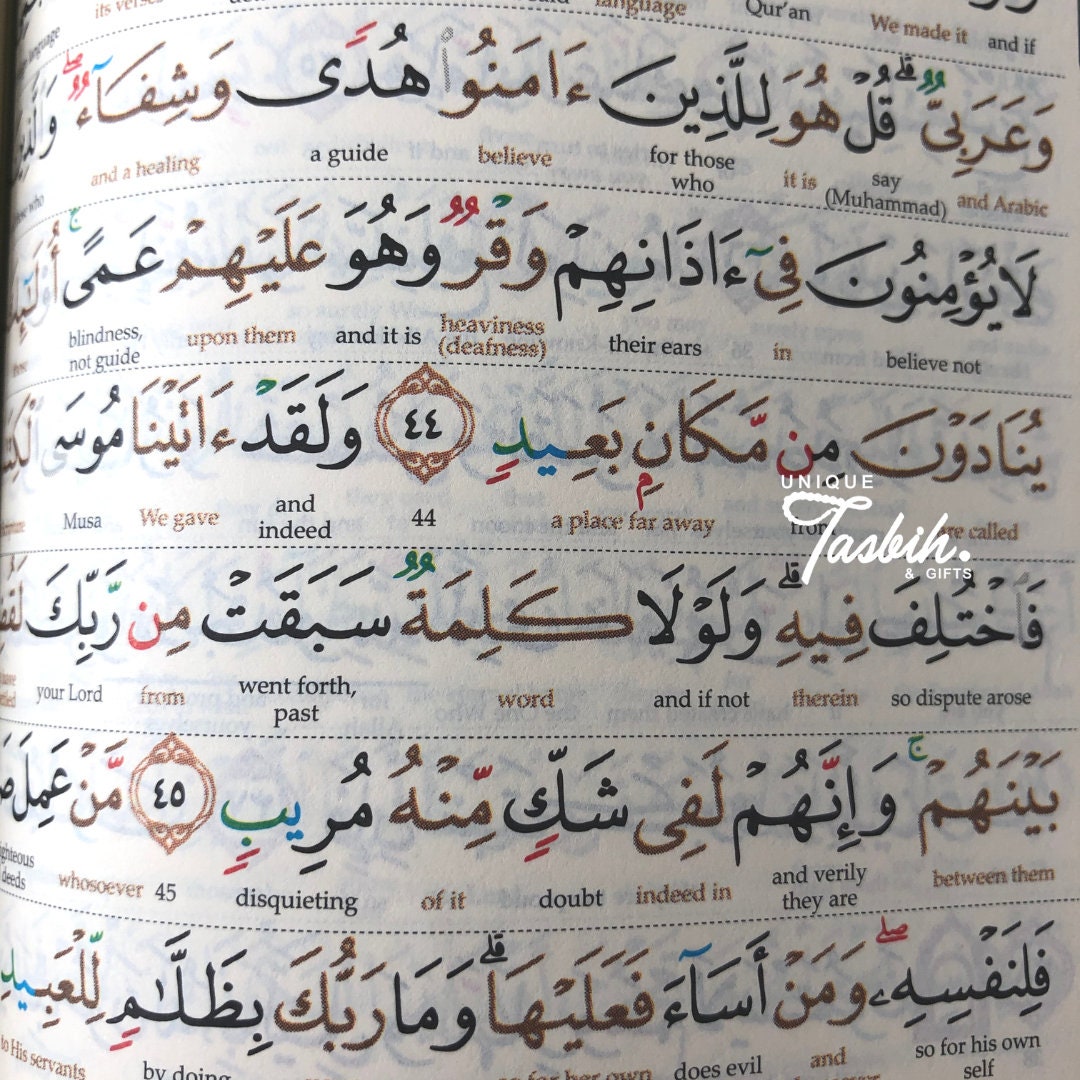 its verses language Qur'an We made it and if
وَعَرَبِىٌّ ۗ قُلْ هُوَ لِلَّذِينَ ءَامَنُوا۟ هُدًى وَشِفَآءٌ ۖ
and Arabic say (Muhammad) it is for those who believe a guide and a healing
لَا يُؤْمِنُونَ فِىٓ ءَاذَانِهِمْ وَقْرٌ وَهُوَ عَلَيْهِمْ عَمًى ۚ
believe not in their ears heaviness (deafness) and it is upon them blindness, not guide
يُنَادَوْنَ مِن مَّكَانٍۭ بَعِيدٍ ٤٤ وَلَقَدْ ءَاتَيْنَا مُوسَى
are called from a place far away 44 and indeed We gave Musa
UNIQUE
Tasbih.
& GIFTS
فَٱخْتُلِفَ فِيهِ ۗ وَلَوْلَا كَلِمَةٌ سَبَقَتْ مِن رَّبِّكَ
so dispute arose therein and if not word went forth, past from your Lord
بَيْنَهُمْ ۚ وَإِنَّهُمْ لَفِى شَكٍّ مِّنْهُ مُرِيبٍ ٤٥ مَّنْ عَمِلَ
between them and verily they are indeed in doubt of it disquieting 45 whosoever deeds
فَلِنَفْسِهِۦ ۖ وَمَنْ أَسَآءَ فَعَلَيْهَا ۗ وَمَا رَبُّكَ بِظَلَّٰمٍ لِّلْعَبِيدِ
so for his own self and does evil so for her own by doing to His servants